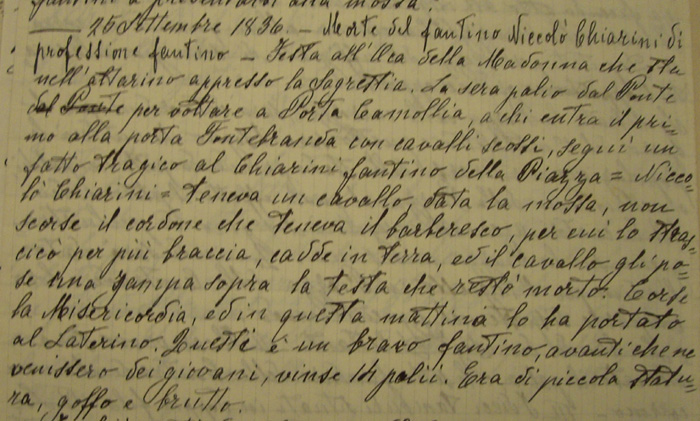 fantini a presentarsi alla mossa.
—— 25 Settembre 1836. – Morte del fantino Niccolò Chiarini di
professione fantino – Festa all'Oca della Madonna che sta
nell'altarino appresso la Sagrestia. La sera palio dal Ponte
dal Ponte per voltare a Porta Camollia, a chi entra il pri=
mo alla porta Fontebranda con cavalli scossi, seguì un
fatto tragico al Chiarini fantino della Piazza = Nicco=
lò Chiarini = teneva un cavallo, data la mossa, non
scorse il cordone che teneva il barberesco, per cui lo stras=
cicò per più braccia, cadde in terra, ed il cavallo gli po=
se una zampa sopra la testa che restò morto. Corse
la Misericordia, ed in questa mattina lo ha portato
al Laterino. Questi è un bravo fantino, avanti che ne
venissero dei giovani, vinse 14 palii. Era di piccola statu=
ra, goffo e brutto.